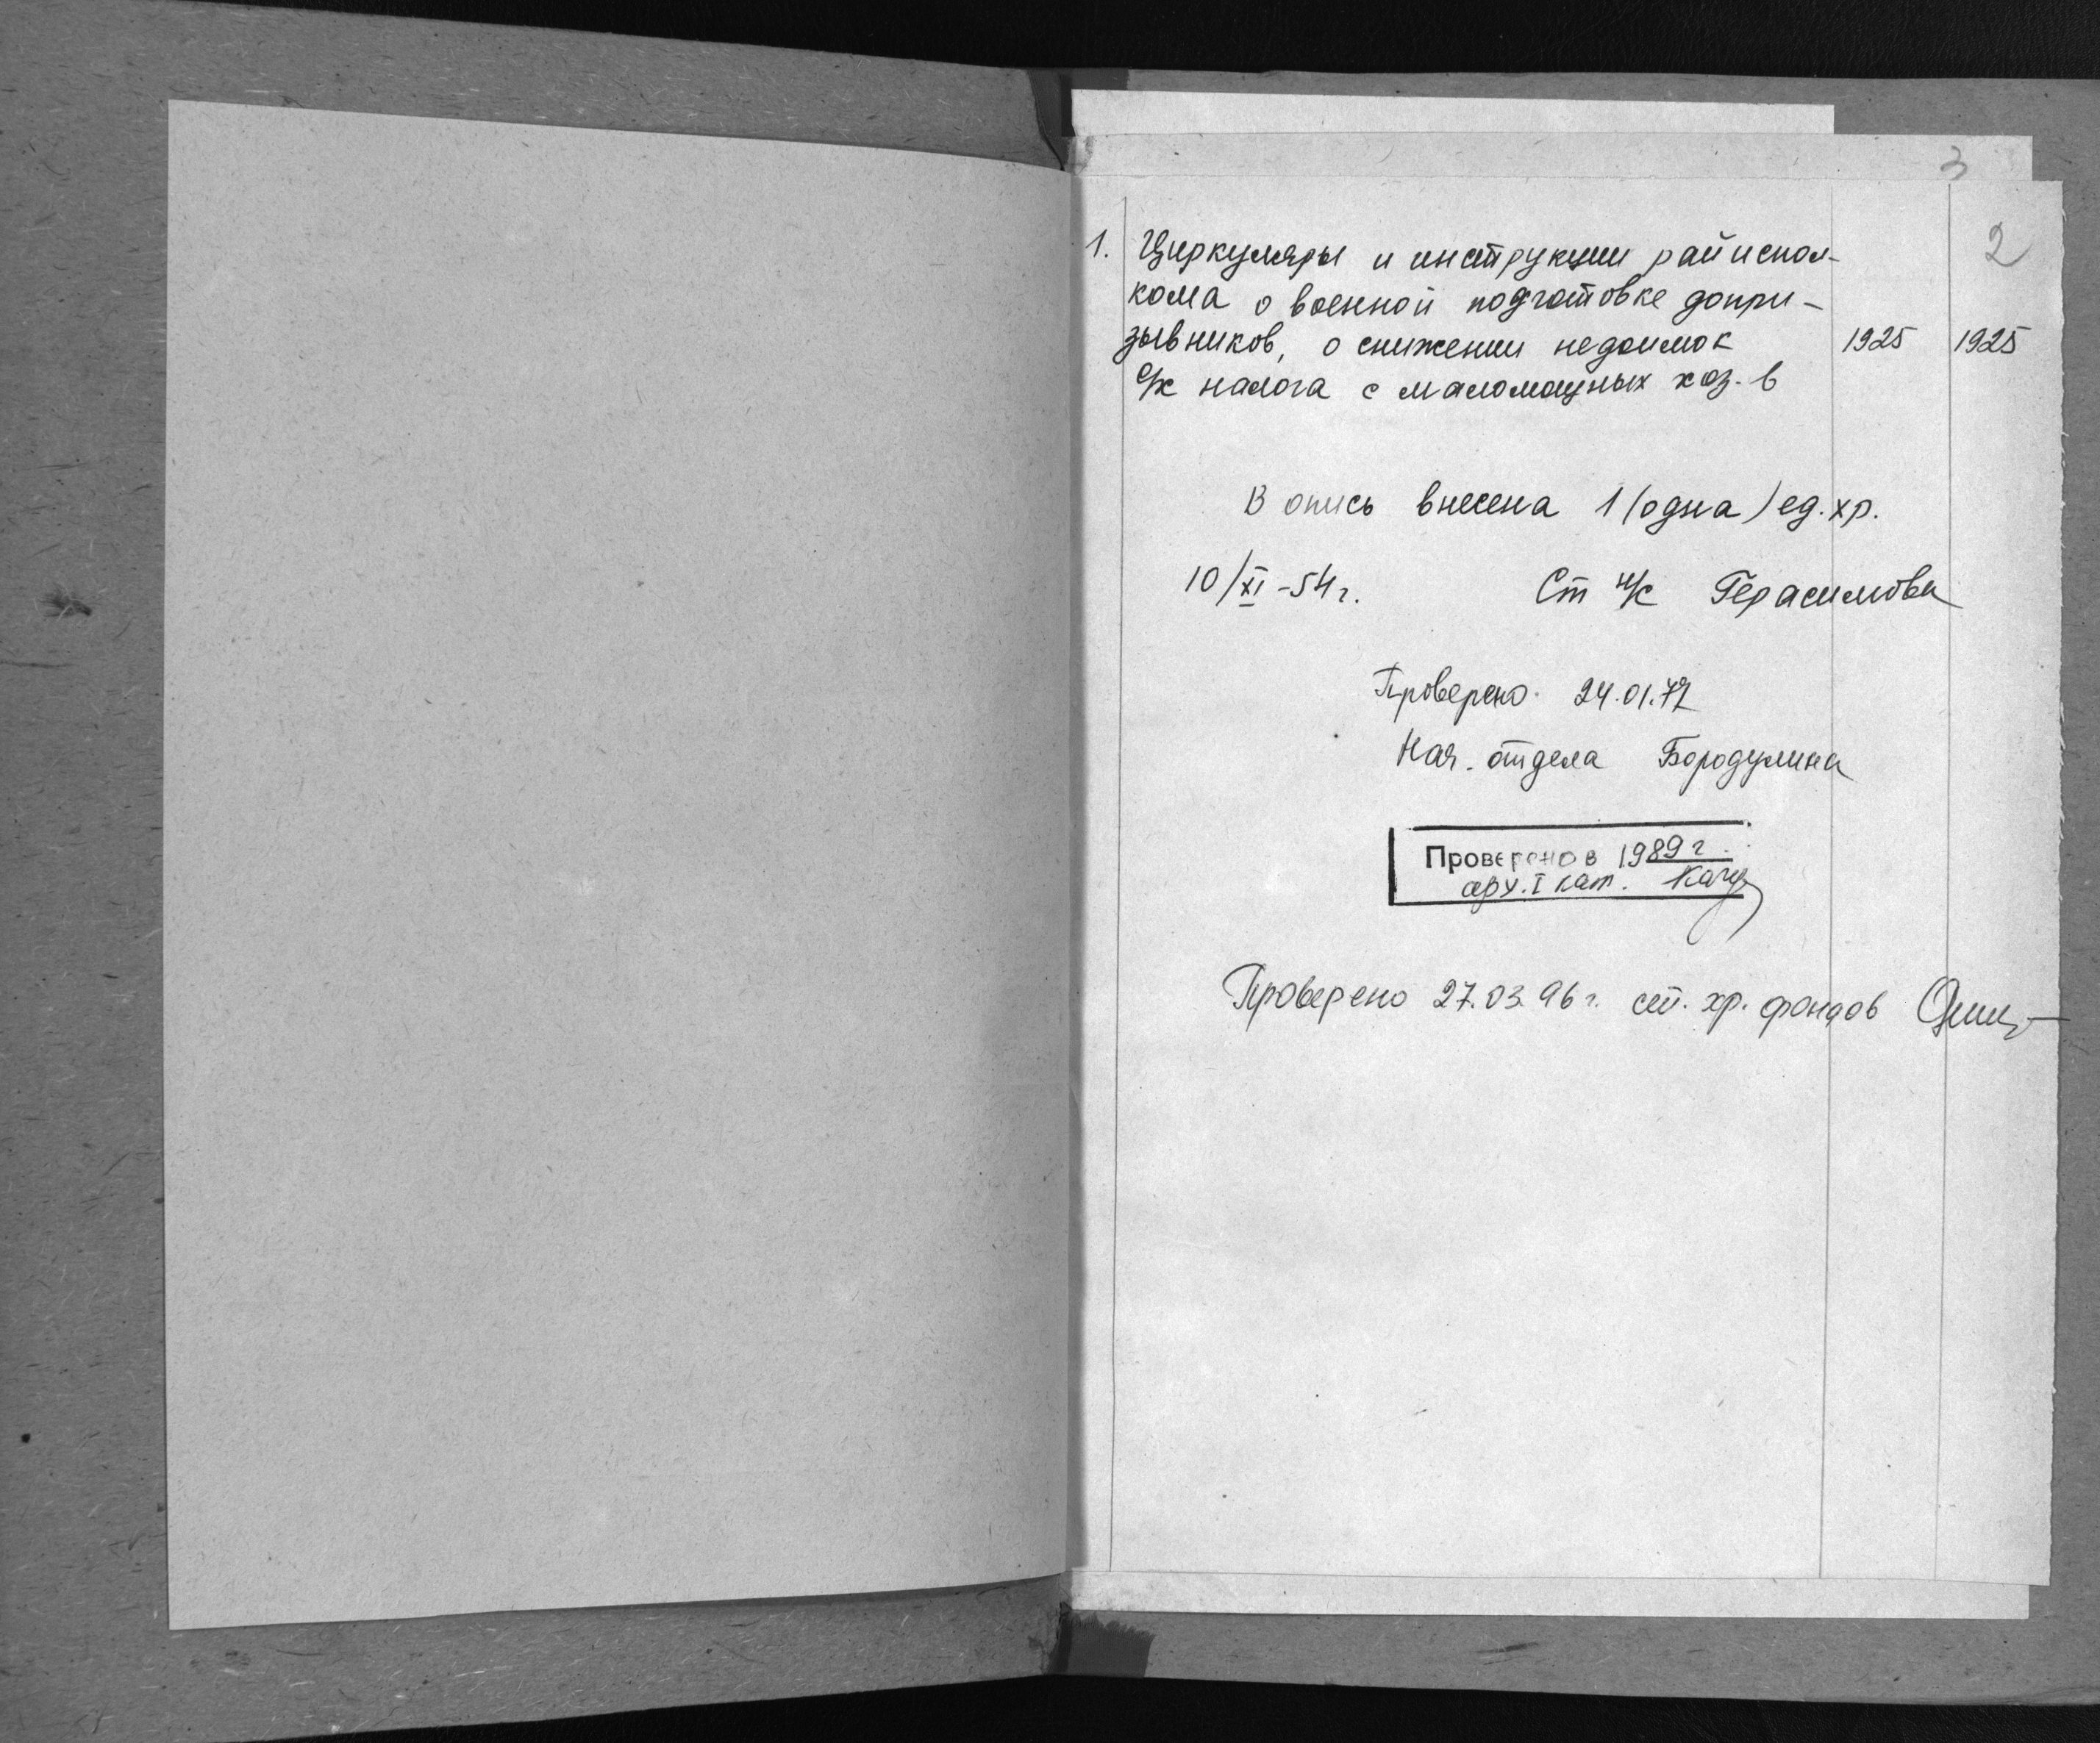 3
2
1. Циркуляры и инструкции райиспол-
кома о военной подготовке допри-
зывников, о снижении недоимок 1925 1925
с/х налога с маломощных хоз-в
В опись внесена 1 (одна) ед. хр.
10/XI-54 г. Ст н/с Герасимова
Проверено 24.01.72
Нач. отдела Бородулина
Проверено в 1989 г.
арх. I кат.
Проверено 27.03.96 г. ст. хр. фондов